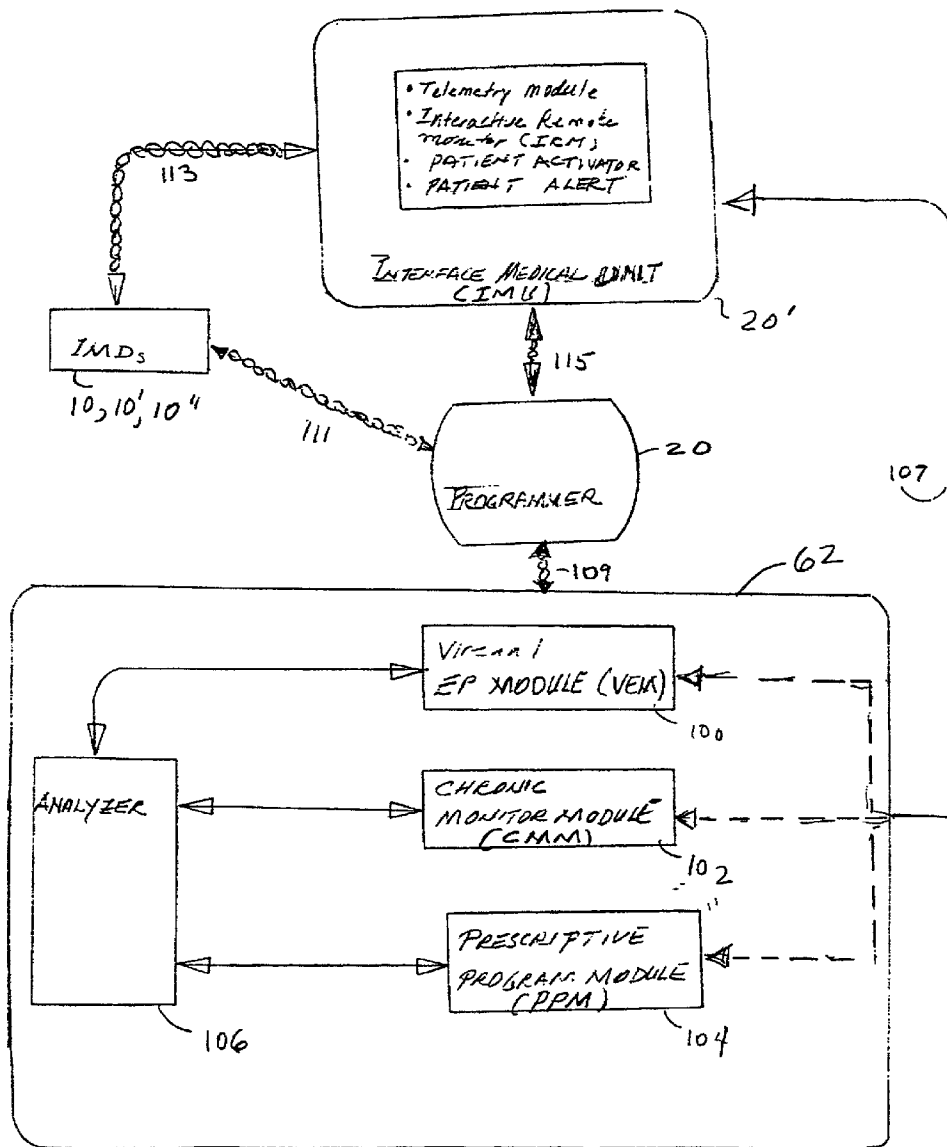 • Telemetry module
• Interactive Remote
monitor (IRM)
• PATIENT ACTIVATOR
• PATIENT ALERT
INTERFACE MEDICAL
(IMU)
20'
113
IMDs
10, 10', 10"
115
111
20
PROGRAMMER
107
109
62
EP MODULE (VEM)
100
ANALYZER
CHRONIC
MONITOR MODULE
(CMM)
102
PRESCRIPTIVE
PROGRAM MODULE
(PPM)
106
104